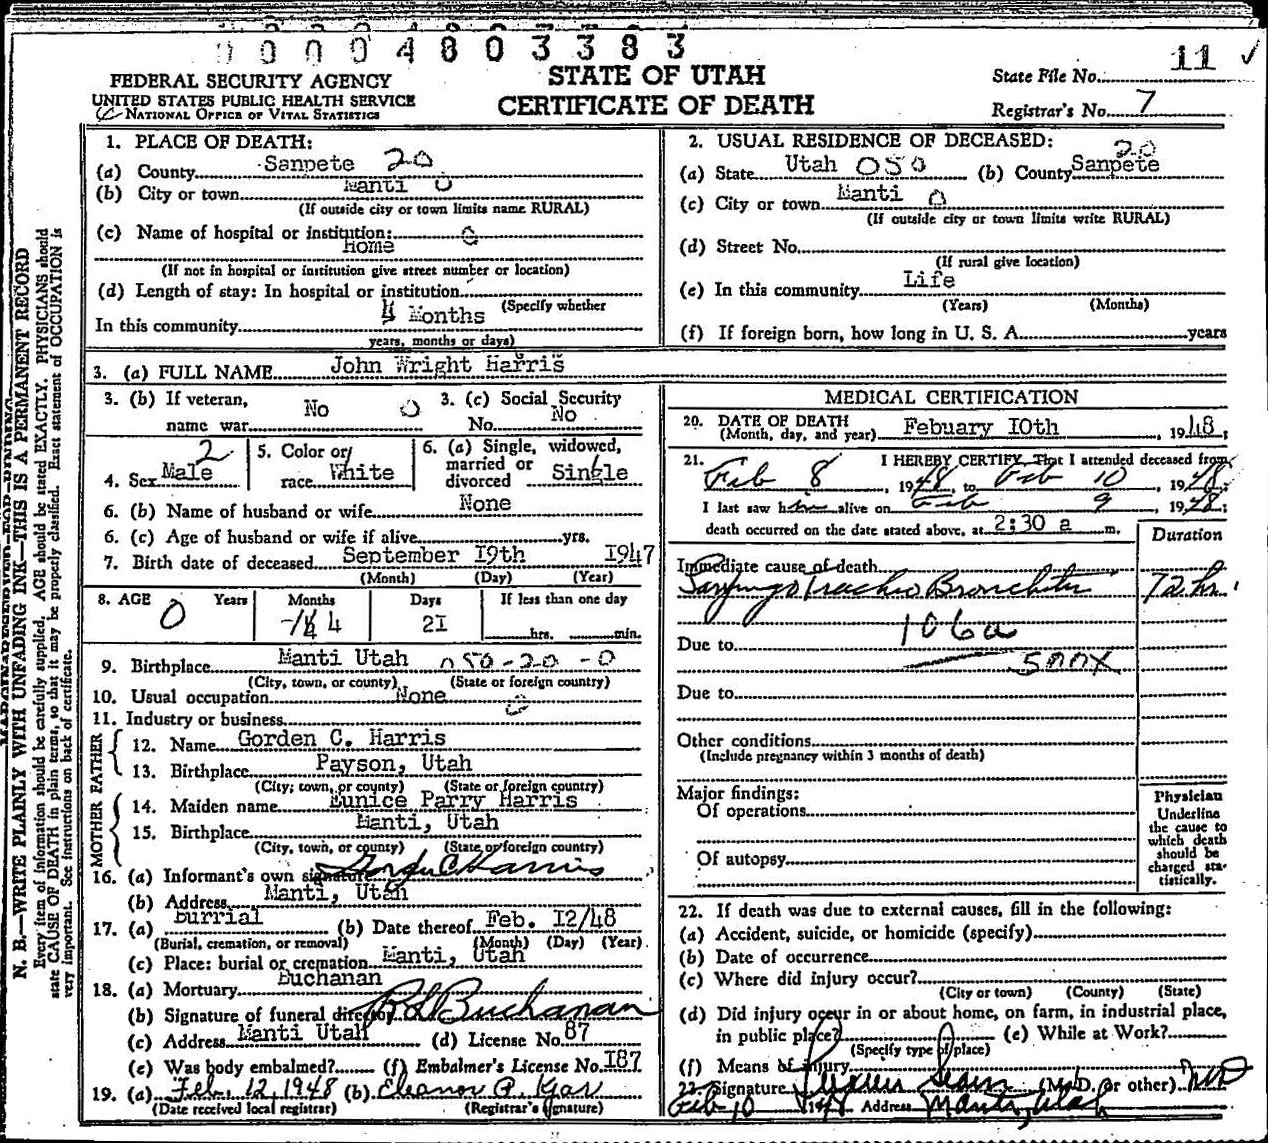 00004803383
11 ✓
FEDERAL SECURITY AGENCY
UNITED STATES PUBLIC HEALTH SERVICE
NATIONAL OFFICE OF VITAL STATISTICS
STATE OF UTAH
CERTIFICATE OF DEATH
State File No.
Registrar's No. 7
N. B.—WRITE PLAINLY WITH UNFADING INK—THIS IS A PERMANENT RECORD
Every item of information should be carefully supplied. AGE should be stated EXACTLY. PHYSICIANS should
state CAUSE OF DEATH in plain terms, so that it may be properly classified. Exact statement of OCCUPATION is
very important. See instructions on back of certificate.
1. PLACE OF DEATH:
(a) County Sanpete 20
(b) City or town Manti 0
(If outside city or town limits name RURAL)
(c) Name of hospital or institution:
Home
(If not in hospital or institution give street number or location)
(d) Length of stay: In hospital or institution
(Specify whether
In this community 4 Months
years, months or days)
2. USUAL RESIDENCE OF DECEASED:
(a) State Utah 050 (b) County Sanpete 20
(c) City or town Manti 0
(If outside city or town limits write RURAL)
(d) Street No.
(If rural give location)
(e) In this community Life
(Years) (Months)
(f) If foreign born, how long in U. S. A. years
3. (a) FULL NAME John Wright Harris
3. (b) If veteran,
name war No 0
3. (c) Social Security
No. No
4. Sex Male 2
5. Color or
race White
6. (a) Single, widowed,
married or
divorced Single
6. (b) Name of husband or wife None
6. (c) Age of husband or wife if alive yrs.
7. Birth date of deceased September I9th I947
(Month) (Day) (Year)
8. AGE Years Months Days If less than one day
0 4 2I hrs. min.
9. Birthplace Manti Utah 050-20-0
(City, town, or county) (State or foreign country)
10. Usual occupation None
11. Industry or business
FATHER
12. Name Gorden C. Harris
13. Birthplace Payson, Utah
(City, town, or county) (State or foreign country)
MOTHER
14. Maiden name Eunice Parry Harris
15. Birthplace Manti, Utah
(City, town, or county) (State or foreign country)
16. (a) Informant's own signature Gordon C Harris
(b) Address Manti, Utah
17. (a) Burrial (b) Date thereof Feb. I2/48
(Burial, cremation, or removal) (Month) (Day) (Year)
(c) Place: burial or cremation Manti, Utah
18. (a) Mortuary Buchanan
(b) Signature of funeral director R L Buchanan
(c) Address Manti Utah (d) License No. 87
(e) Was body embalmed? (f) Embalmer's License No. I87
19. (a) Feb. 12, 1948 (b) Eleanor P.
(Date received local registrar) (Registrar's signature)
MEDICAL CERTIFICATION
20. DATE OF DEATH
(Month, day, and year) Febuary I0th, 1948;
21. I HEREBY CERTIFY, That I attended deceased from
Feb 8, 1948 to Feb 10, 1948
I last saw him alive on Feb 9, 1948;
death occurred on the date stated above, at 2:30 a m.
Duration
Immediate cause of death
Laryngo Tracheo Bronchitis 72 hr.
106a
Due to
500X
Due to
Other conditions
(Include pregnancy within 3 months of death)
Major findings:
Of operations
Of autopsy
Physician
Underline
the cause to
which death
should be
charged sta-
tistically.
22. If death was due to external causes, fill in the following:
(a) Accident, suicide, or homicide (specify)
(b) Date of occurrence
(c) Where did injury occur?
(City or town) (County) (State)
(d) Did injury occur in or about home, on farm, in industrial place,
in public place? (e) While at Work?
(Specify type of place)
(f) Means of injury
23. Signature (M. D. or other) MD
Feb 10 1948 Address Manti, Utah